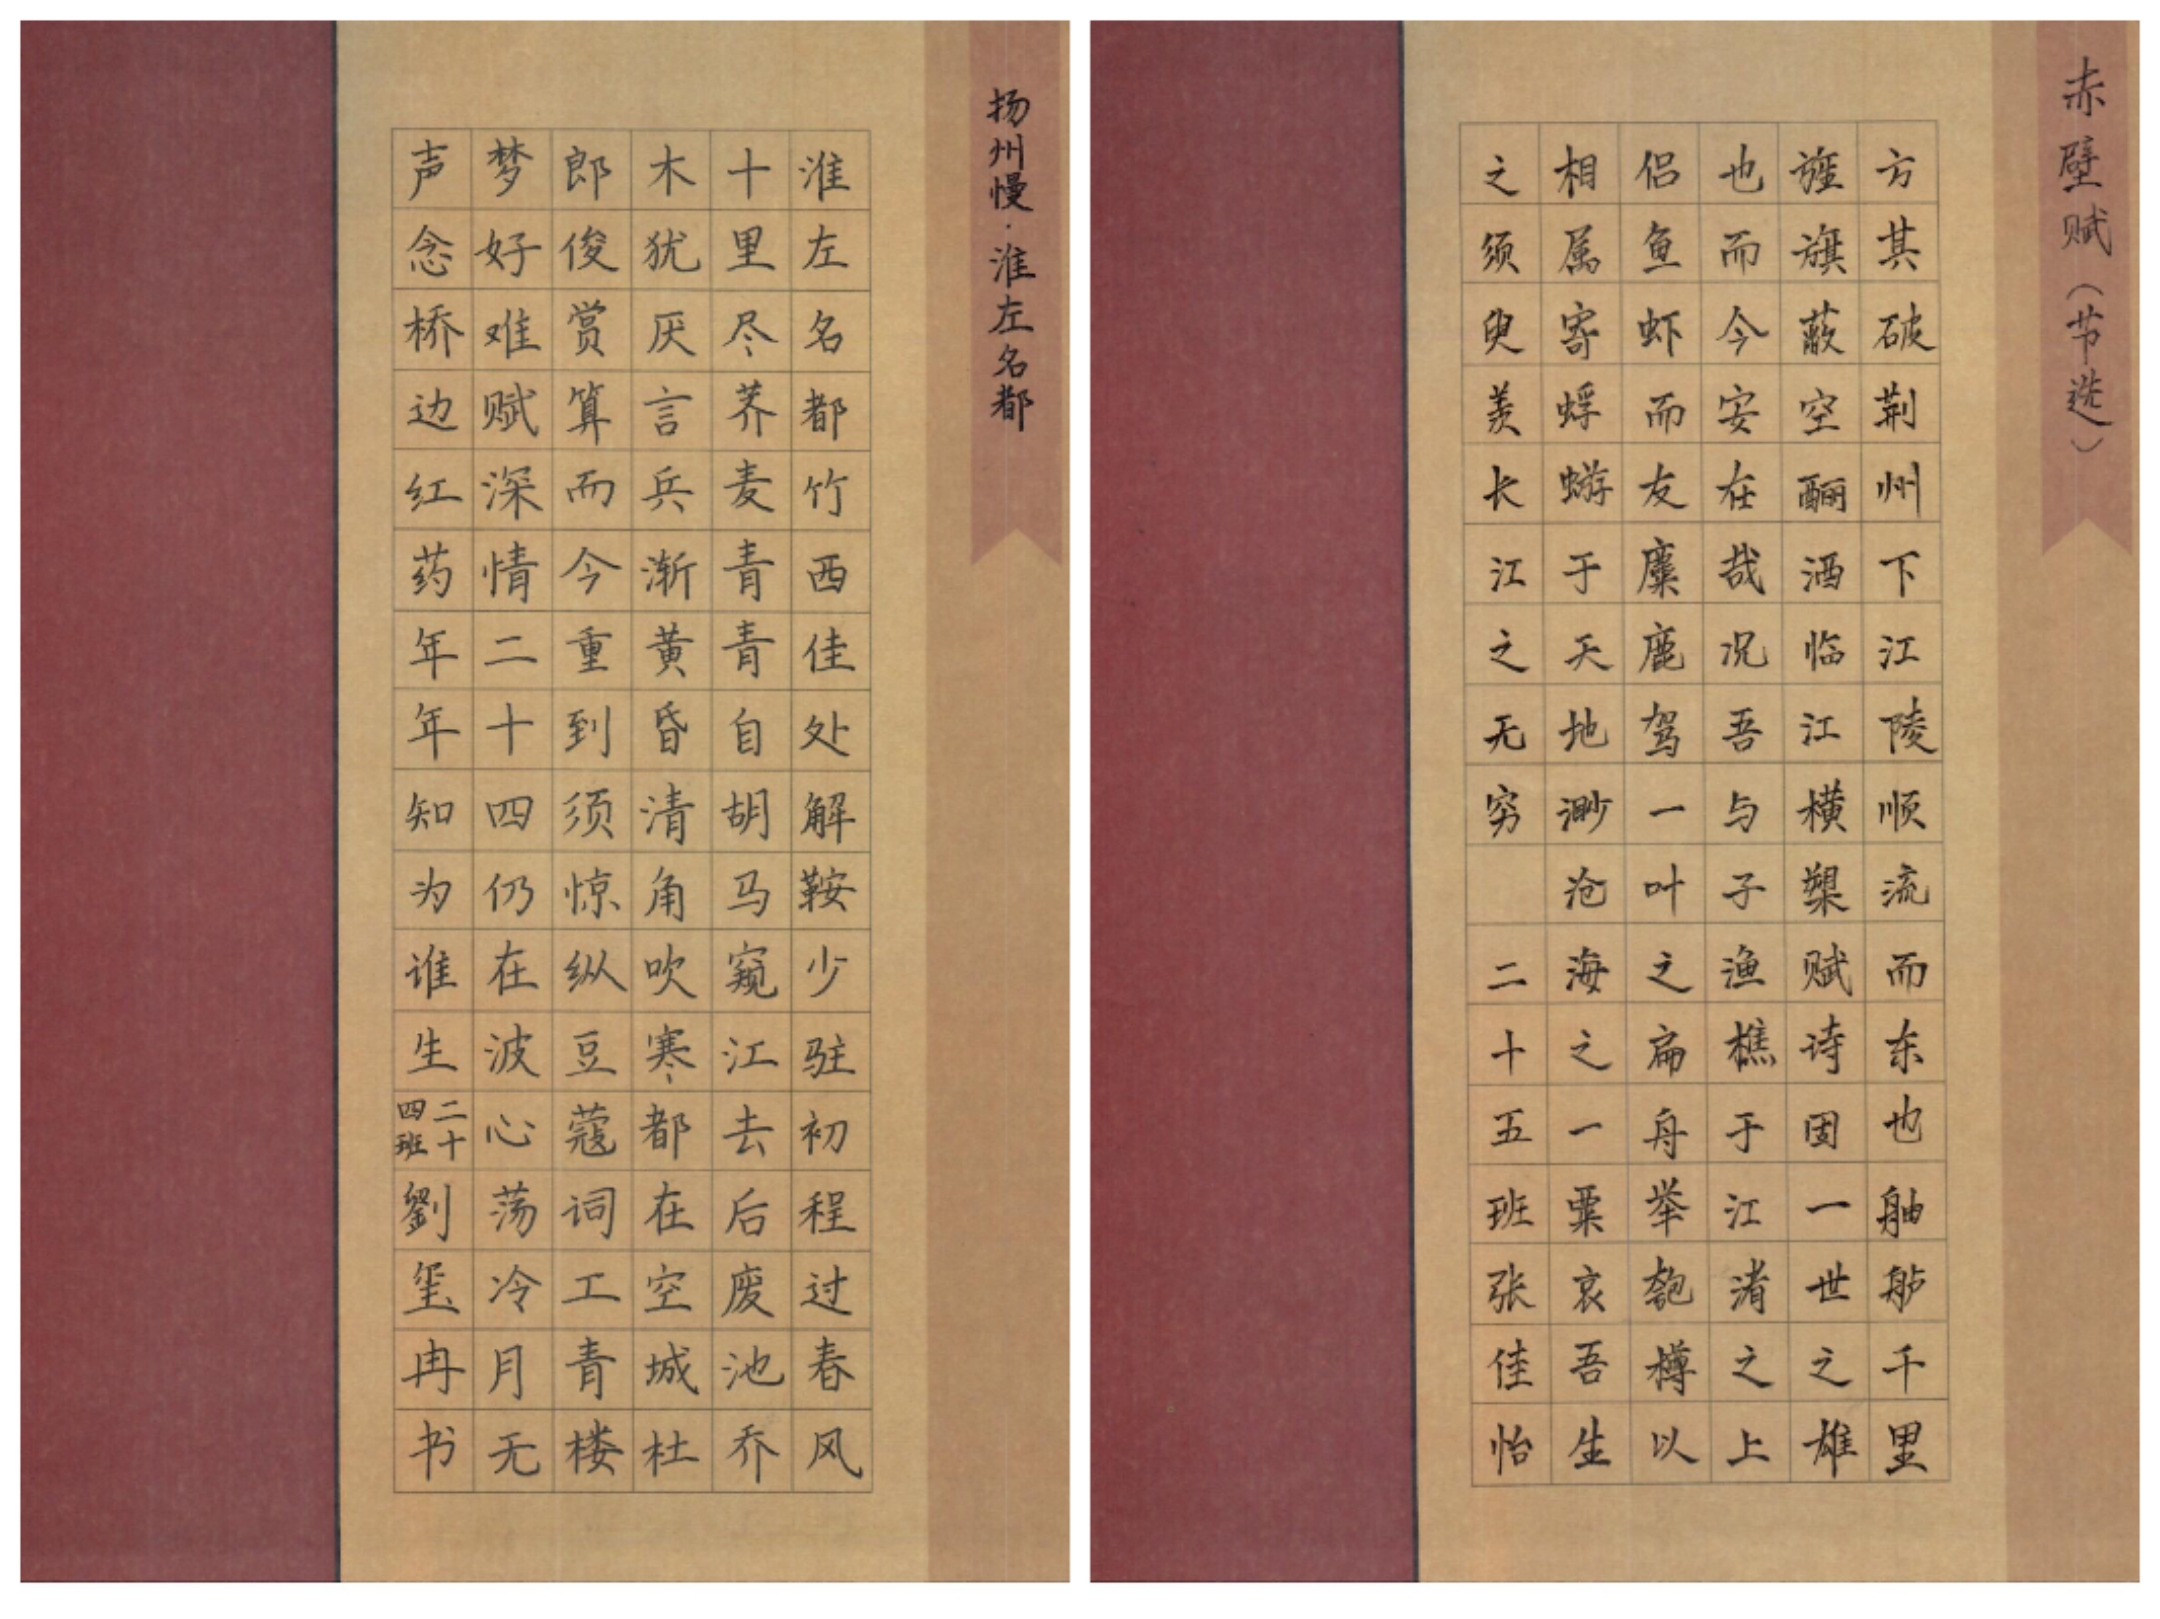 扬州慢·淮左名都
淮左名都竹西佳处解鞍少驻初程过春风
十里尽荠麦青青自胡马窥江去后废池乔
木犹厌言兵渐黄昏清角吹寒都在空城杜
郎俊赏算而今重到须惊纵豆蔻词工青楼
梦好难赋深情二十四仍在波心荡冷月无
声念桥边红药年年知为谁生二十四班劉玺冉书
赤壁赋（节选）
方其破荆州下江陵顺流而东也舳舻千里
旌旗蔽空酾酒临江横槊赋诗固一世之雄
也而今安在哉况吾与子渔樵于江渚之上
侣鱼虾而友麋鹿驾一叶之扁舟举匏樽以
相属寄蜉蝣于天地渺沧海之一粟哀吾生
之须臾羡长江之无穷 二十五班张佳怡